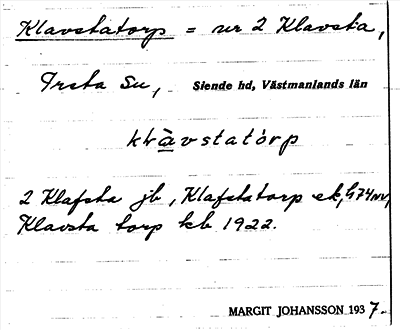 Klavstatorp = nr 2 Klavsta,
Irsta Sn, Siende hd, Västmanlands län
klàvstatórp
2 Klafsta jb, Klafstatorp ek, G74NV,
Klavsta torp kb 1922.
MARGIT JOHANSSON 1937.